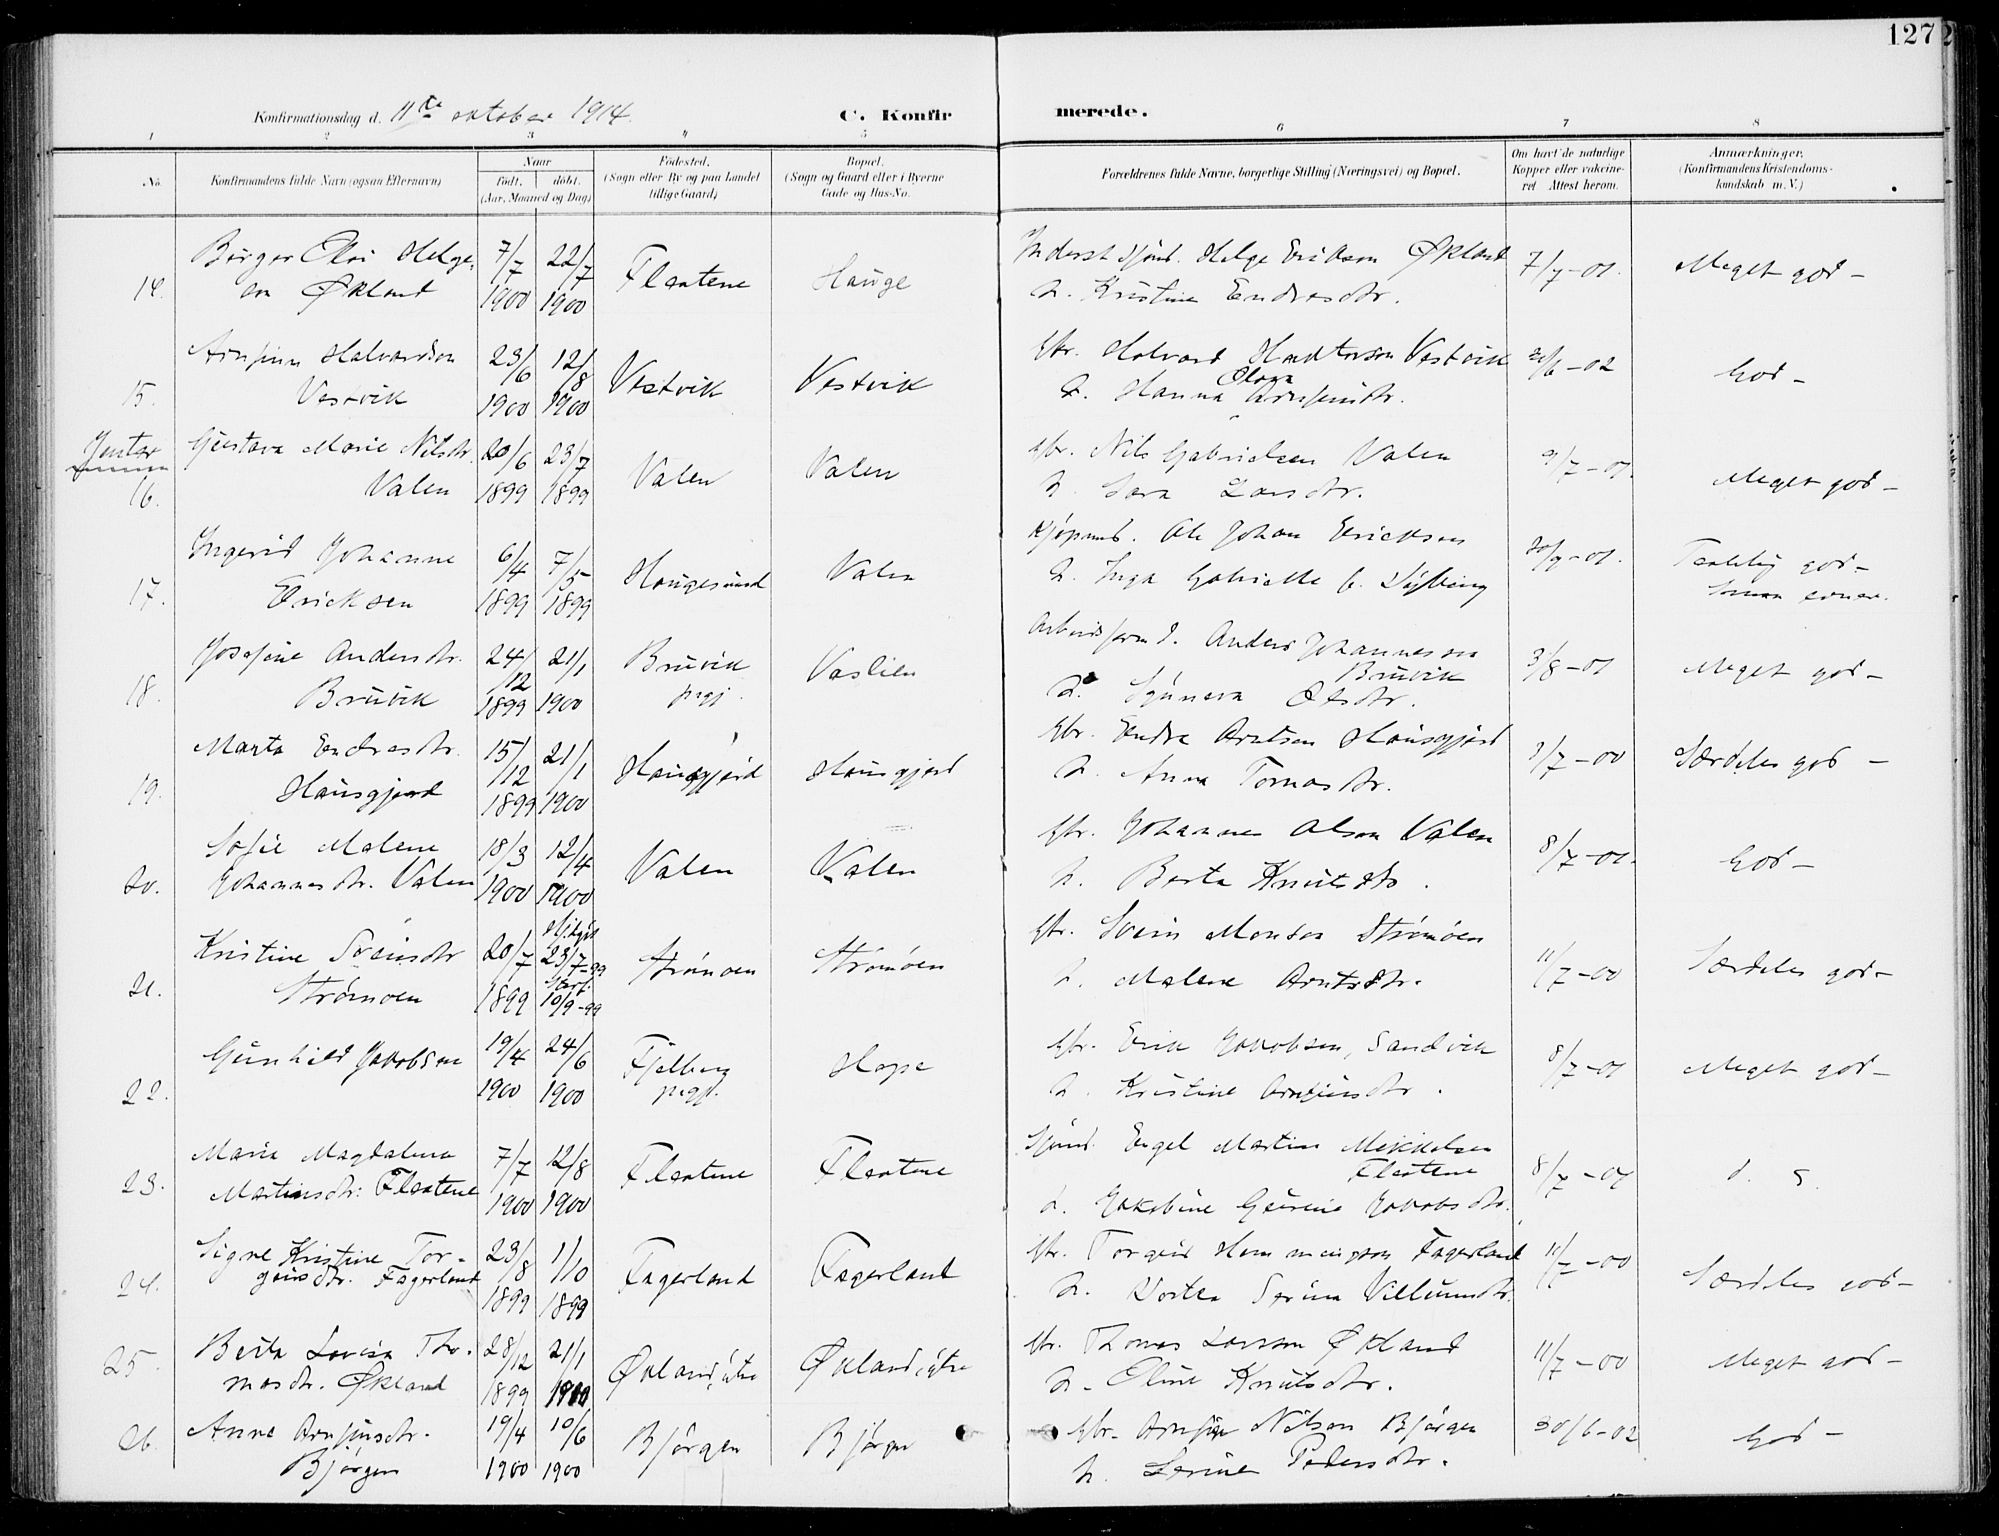 127
Konfirmationsdag d. 11te oktober 1914
C. Konfirmerede.
1 2 3 4 5 6 7 8
No.
Konfirmandens fulde Navn (ogsaa Efternavn)
Naar
født. døbt.
(Aar, Maaned og Dag)
Fødested.
(Sogn eller By og paa Landet
tillige Gaard)
Bopæl.
(Sogn og Gaard eller i Byerne
Gade og Hus-No.
Forældrenes fulde Navne, borgerlige Stilling (Næringsvei) og Bopæl.
Om havt de naturlige
Kopper eller vakcine-
ret. Attest herom.
Anmærkninger.
(Konfirmandens Kristendoms-
kundskab m. V.)
14. Birger Olai Helge-
son Økland 7/7 1900 22/7 1900 Flaatene Hauge
Inderst Sjømd. Helge Erikson Økland
h. Kristine Endresdtr. 7/7-01. Meget god-
15. Arnfinn Halvardson
Vestvik 23/6 1900 12/8 1900 Vestvik Vestvik
Gbr. Halvard Vestvik
h. Hanna Olava Arnfinsdtr. 30/6-02 God-
Jenter
16. Gustava Marie Nilsdtr.
Valen 20/6 1899 23/7 1899 Valen Valen
Gbr. Nils Gabrielsen Valen
h. Sara Larsdtr. 9/7-01. Meget god-
17. Ingerid Johanne
Ericksen 6/4 1899 7/5 1899 Haugesund Valen
Kjøpmd. Ole Johan Ericksen
h. Inga Gabrielle f. 20/9-01. Taalelig god-
Smaa evner.
18. Josefine Andersdtr.
Bruvik 24/12 1899 21/1 1900 Bruvik
prgj. Vaslien
Arbeidsformd. Anders Johannesson
Bruvik
h. Synneva Olsdtr. 3/8-01 Meget god-
19. Marta Endresdtr.
Hausgjerd 15/12 1899 21/1 1900 Hausgjerd Hausgjerd
Gbr. Endre Arntsen Hausgjerd
h. Anna Tomasdtr. 9/7-00 Særdeles god-
20. Sofie Malene
Johannesdtr. Valen 18/3 1900 12/4 1900 Valen Valen
Gbr. Johannes Olson Valen
h. Berta Knutsdtr. 8/7-01. God-
21. Kristine Sveinsdtr
Strømøen 20/7 1899 Hjdøpt
23/7-99
Stadf.
10/9-99 Strømøen Strømøen
Gbr. Svein Monson Strømøen
h. Malene Arntsdtr. 11/7-00 Særdeles god-
22. Gunhild Jakobsen 19/4 1900 24/6 1900 Fjelberg
prgj. Hope
Gbr. Erik Jakobsen, Sandvik
h. Kristine Arnfinsdtr. 8/7-01 Meget god-
23. Maria Magdalena
Martinsdtr. Flaatene 7/7 1900 12/8 1900 Flaatene Flaatene
Sjømd. Engel Martin Mikkelsen
Flaatene
h. Jakobine Gurine Jakobsdtr. 8/7-01 d. s.
24. Signe Kristine Tor-
geirsdtr. Fagerland 23/8 1899 1/10 1899 Fagerland Fagerland
Gbr. Torgeir Hemmingson Fagerland
h. Dortea Serina Villumsdtr. 11/7-00 Særdeles god-
25. Berta Lovisa Tho-
masdtr. Økland 28/12 1899 21/1 1900 Økland, ytre Økland, ytre
Gbr. Thomas Larsson Økland
h. Oline Knutsdtr. 11/7-00 Meget god-
26. Anne Arnfinsdtr.
Bjørgen 19/4 1900 10/6 1900 Bjørgen Bjørgen
Gbr. Arnfin Nilson Bjørgen
h. Serine Pedersdtr. 30/6-02 God-